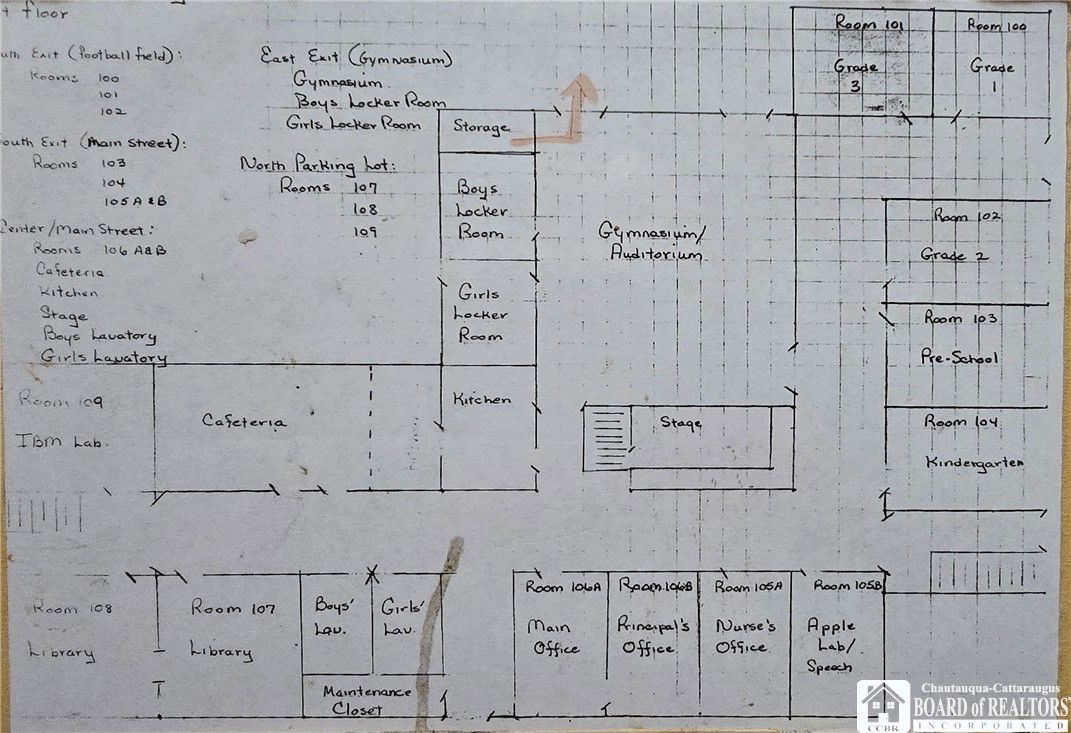 t floor
uth Exit (football field):
Rooms 100
101
102
outh Exit (Main Street):
Rooms 103
104
105 A & B
Center/Main Street:
Rooms 106 A&B
Cafeteria
Kitchen
Stage
Boys Lavatory
Girls Lavatory
East Exit (Gymnasium)
Gymnasium
Boys Locker Room
Girls Locker Room
North Parking Lot:
Rooms 107
108
109
Storage
Boys
Locker
Room
Girls
Locker
Room
Kitchen
Gymnasium/
Auditorium
Stage
Room 101
Grade
3
Room 100
Grade
1
Room 102
Grade 2
Room 103
Pre-School
Room 104
Kindergarten
Room 109
IBM Lab.
Cafeteria
Room 108
Library
Room 107
Library
Boys'
Lav.
Girls'
Lav.
Maintenance
Closet
Room 106A
Main
Office
Room 106B
Principal's
Office
Room 105A
Nurse's
Office
Room 105B
Apple
Lab/
Speech
Chautauqua-Cattaraugus
BOARD of REALTORS
INCORPORATED
CCBR